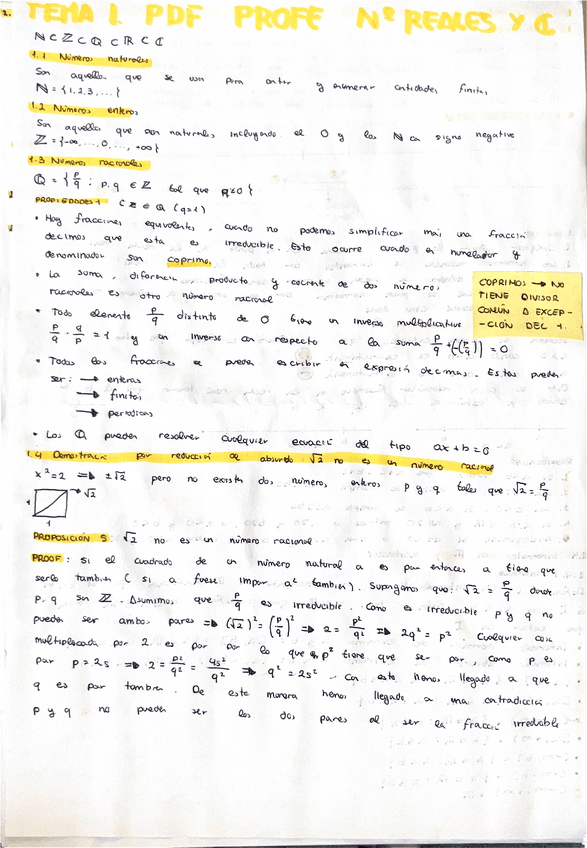 TEMA 1. PDF PROFE Nº REALES Y ℂ
ℕ ⊂ ℤ ⊂ ℚ ⊂ ℝ ⊂ ℂ
1.1 Números naturales
Son aquellos que se usan para contar y enumerar cantidades finitas
ℕ = {1, 2, 3, ...}
1.2 Números enteros
Son aquellos que son naturales incluyendo el 0 y los ℕ con signo negativo
ℤ = {-∞, ..., 0, ..., +∞}
1.3 Números racionales
ℚ = { p/q : p, q ∈ ℤ tal que q≠0 }
PROPIEDADES
ℤ ∈ ℚ (q=1)
• Hay fracciones equivalentes, cuando no podemos simplificar más una fracción
decimos que esta es irreducible. Esto ocurre cuando el numerador y
denominador son coprimos
• La suma, diferencia, producto y cociente de dos números
racionales es otro número racional
COPRIMOS → NO
TIENE DIVISOR
COMÚN A EXCEP-
-CIÓN DEL 1.
• Todo elemento p/q distinto de 0 tiene un inverso multiplicativo
p/q · q/p = 1 y un inverso con respecto a la suma p/q + (-(p/q)) = 0
• Todas las fracciones se pueden escribir en expresión decimal. Estas pueden
ser: → enteras
→ finitas
→ periodicas
• Los ℚ pueden resolver cualquier ecuación del tipo ax+b=0
1.4 Demostración por reducción al absurdo: √2 no es un número racional
x²=2 ⇒ ±√2 pero no existen dos números enteros p y q tales que √2 = p/q
1
→ √2
1
PROPOSICIÓN 5: √2 no es un número racional
PROOF: Si el cuadrado de un número natural a es par entonces a tiene que
serlo también (si a fuese impar a² también). Supongamos que: √2 = p/q donde
p, q son ℤ. Asumimos que p/q es irreducible. Como es irreducible p y q no
pueden ser ambos pares ⇒ (√2)² = (p/q)² ⇒ 2 = p²/q² ⇒ 2q² = p² Cualquier cosa
multiplicada por 2 es par por lo que p² tiene que ser par, como p es
par p = 2s ⇒ 2 = p²/q² = 4s²/q² ⇒ q² = 2s². Con esto hemos llegado a que
q es par también. De esta manera hemos llegado a una contradicción
p y q no pueden ser los dos pares al ser la fracción irreducible